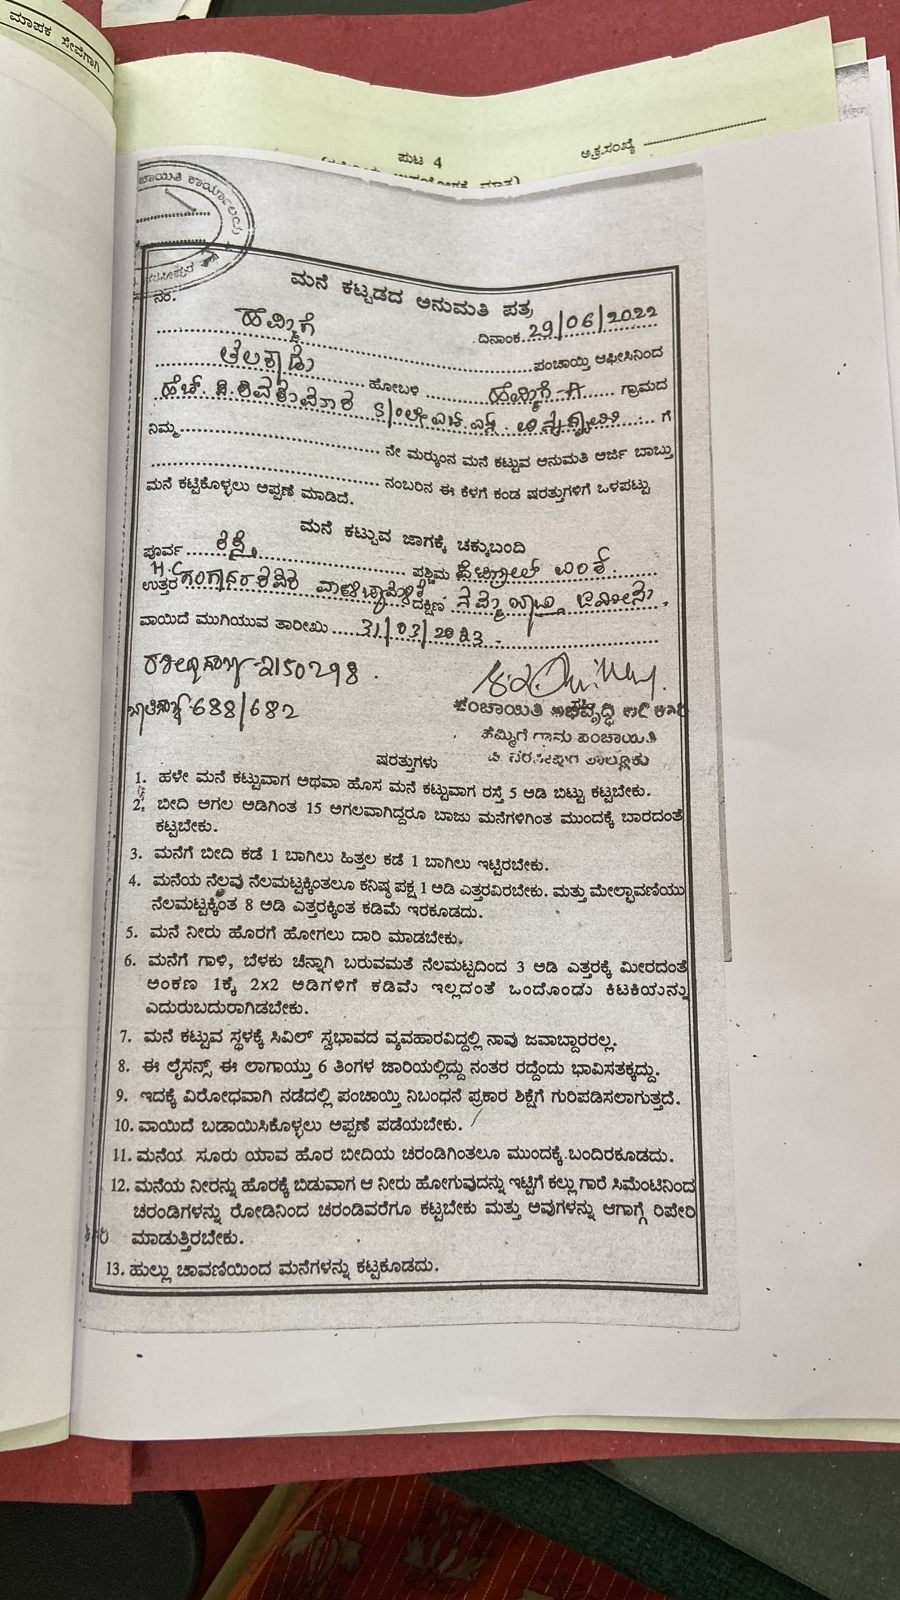 ಮಾಪಕ ಸೇವೆಗಾಗಿ
ಪುಟ 4
ಅ.ಕ್ರ.ಸಂಖ್ಯೆ
ಕಾರ್ಯಾಲಯ
ಮನೆ ಕಟ್ಟಡದ ಅನುಮತಿ ಪತ್ರ
ನಂ.
ದಿನಾಂಕ 29/06/2022
ಹೆಮ್ಮಿಗೆ ಪಂಚಾಯ್ತಿ ಆಫೀಸಿನಿಂದ
ತಲಕಾಡು ಹೋಬಳಿ ಹೆಮ್ಮಿಗೆ ಗ್ರಾಮದ
ಗೆ
ನಿಮ್ಮ ನೇ ಮರ್‍ಕುಂನ ಮನೆ ಕಟ್ಟುವ ಅನುಮತಿ ಅರ್ಜಿ ಬಾಬ್ತು
ನಂಬರಿನ ಈ ಕೆಳಗೆ ಕಂಡ ಷರತ್ತುಗಳಿಗೆ ಒಳಪಟ್ಟು
ಮನೆ ಕಟ್ಟಿಕೊಳ್ಳಲು ಅಪ್ಪಣೆ ಮಾಡಿದೆ.
ಮನೆ ಕಟ್ಟುವ ಜಾಗಕ್ಕೆ ಚಕ್ಕುಬಂದಿ
ಪೂರ್ವ ರಸ್ತೆ ಪಶ್ಚಿಮ
ಉತ್ತರ H.C ದಕ್ಷಿಣ
ವಾಯಿದೆ ಮುಗಿಯುವ ತಾರೀಖು 31/03/2023
2150298
688/682
ಪಂಚಾಯಿತಿ ಅಭಿವೃದ್ಧಿ ಅಧಿಕಾರಿ
ಹೆಮ್ಮಿಗೆ ಗ್ರಾಮ ಪಂಚಾಯಿತಿ
ಷರತ್ತುಗಳು
1. ಹಳೇ ಮನೆ ಕಟ್ಟುವಾಗ ಅಥವಾ ಹೊಸ ಮನೆ ಕಟ್ಟುವಾಗ ರಸ್ತೆ 5 ಅಡಿ ಬಿಟ್ಟು ಕಟ್ಟಬೇಕು.
2. ಬೀದಿ ಅಗಲ ಅಡಿಗಿಂತ 15 ಅಗಲವಾಗಿದ್ದರೂ ಬಾಜು ಮನೆಗಳಿಗಿಂತ ಮುಂದಕ್ಕೆ ಬಾರದಂತೆ
ಕಟ್ಟಬೇಕು.
3. ಮನೆಗೆ ಬೀದಿ ಕಡೆ 1 ಬಾಗಿಲು ಹಿತ್ತಲ ಕಡೆ 1 ಬಾಗಿಲು ಇಟ್ಟಿರಬೇಕು.
4. ಮನೆಯ ನೆಲ್ಲವು ನೆಲಮಟ್ಟಕ್ಕಿಂತಲೂ ಕನಿಷ್ಠ ಪಕ್ಷ 1 ಅಡಿ ಎತ್ತರವಿರಬೇಕು. ಮತ್ತು ಮೇಲ್ಛಾವಣಿಯು
ನೆಲಮಟ್ಟಕ್ಕಿಂತ 8 ಅಡಿ ಎತ್ತರಕ್ಕಿಂತ ಕಡಿಮೆ ಇರಕೂಡದು.
5. ಮನೆ ನೀರು ಹೊರಗೆ ಹೋಗಲು ದಾರಿ ಮಾಡಬೇಕು.
6. ಮನೆಗೆ ಗಾಳಿ, ಬೆಳಕು ಚೆನ್ನಾಗಿ ಬರುವಮತೆ ನೆಲಮಟ್ಟದಿಂದ 3 ಅಡಿ ಎತ್ತರಕ್ಕೆ ಮೀರದಂತೆ
ಅಂಕಣ 1ಕ್ಕೆ 2x2 ಅಡಿಗಳಿಗೆ ಕಡಿಮೆ ಇಲ್ಲದಂತೆ ಒಂದೊಂಡು ಕಿಟಕಿಯನ್ನು
ಎದುರುಬದುರಾಗಿಡಬೇಕು.
7. ಮನೆ ಕಟ್ಟುವ ಸ್ಥಳಕ್ಕೆ ಸಿವಿಲ್ ಸ್ವಭಾವದ ವ್ಯವಹಾರವಿದ್ದಲ್ಲಿ ನಾವು ಜವಾಬ್ದಾರರಲ್ಲ.
8. ಈ ಲೈಸನ್ಸ್ ಈ ಲಾಗಾಯ್ತು 6 ತಿಂಗಳ ಜಾರಿಯಲ್ಲಿದ್ದು ನಂತರ ರದ್ದೆಂದು ಭಾವಿಸತಕ್ಕದ್ದು.
9. ಇದಕ್ಕೆ ವಿರೋಧವಾಗಿ ನಡೆದಲ್ಲಿ ಪಂಚಾಯ್ತಿ ನಿಬಂಧನೆ ಪ್ರಕಾರ ಶಿಕ್ಷೆಗೆ ಗುರಿಪಡಿಸಲಾಗುತ್ತದೆ.
10. ವಾಯಿದೆ ಬಡಾಯಿಸಿಕೊಳ್ಳಲು ಅಪ್ಪಣೆ ಪಡೆಯಬೇಕು.
11. ಮನೆಯ ಸೂರು ಯಾವ ಹೊರ ಬೀದಿಯ ಚರಂಡಿಗಿಂತಲೂ ಮುಂದಕ್ಕೆ ಬಂದಿರಕೂಡದು.
12. ಮನೆಯ ನೀರನ್ನು ಹೊರಕ್ಕೆ ಬಿಡುವಾಗ ಆ ನೀರು ಹೋಗುವುದನ್ನು ಇಟ್ಟಿಗೆ ಕಲ್ಲು ಗಾರೆ ಸಿಮೆಂಟಿನಿಂದ
ಚರಂಡಿಗಳನ್ನು ರೋಡಿನಿಂದ ಚರಂಡಿವರೆಗೂ ಕಟ್ಟಬೇಕು ಮತ್ತು ಅವುಗಳನ್ನು ಆಗಾಗ್ಗೆ ರಿಪೇರಿ
ಮಾಡುತ್ತಿರಬೇಕು.
13. ಹುಲ್ಲು ಚಾವಣಿಯಿಂದ ಮನೆಗಳನ್ನು ಕಟ್ಟಕೂಡದು.